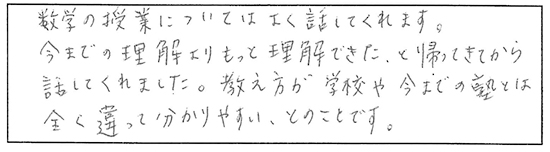 数学の授業についてはよく話してくれます。
今までの理解よりもっと理解できた、と帰ってきてから
話してくれました。教え方が学校や今までの塾とは
全く違って分かりやすい、とのことです。